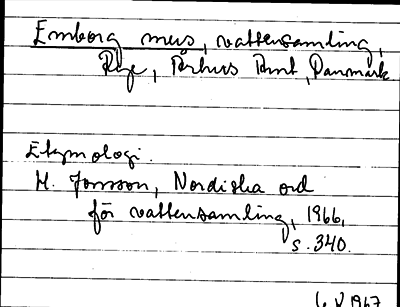 Emborg mose, vattensamling,
Rye, Århus Amt, Danmark
Etymologi.
H. Jonsson, Nordiska ord
för vattensamling, 1966,
s. 340.
6.V 1967